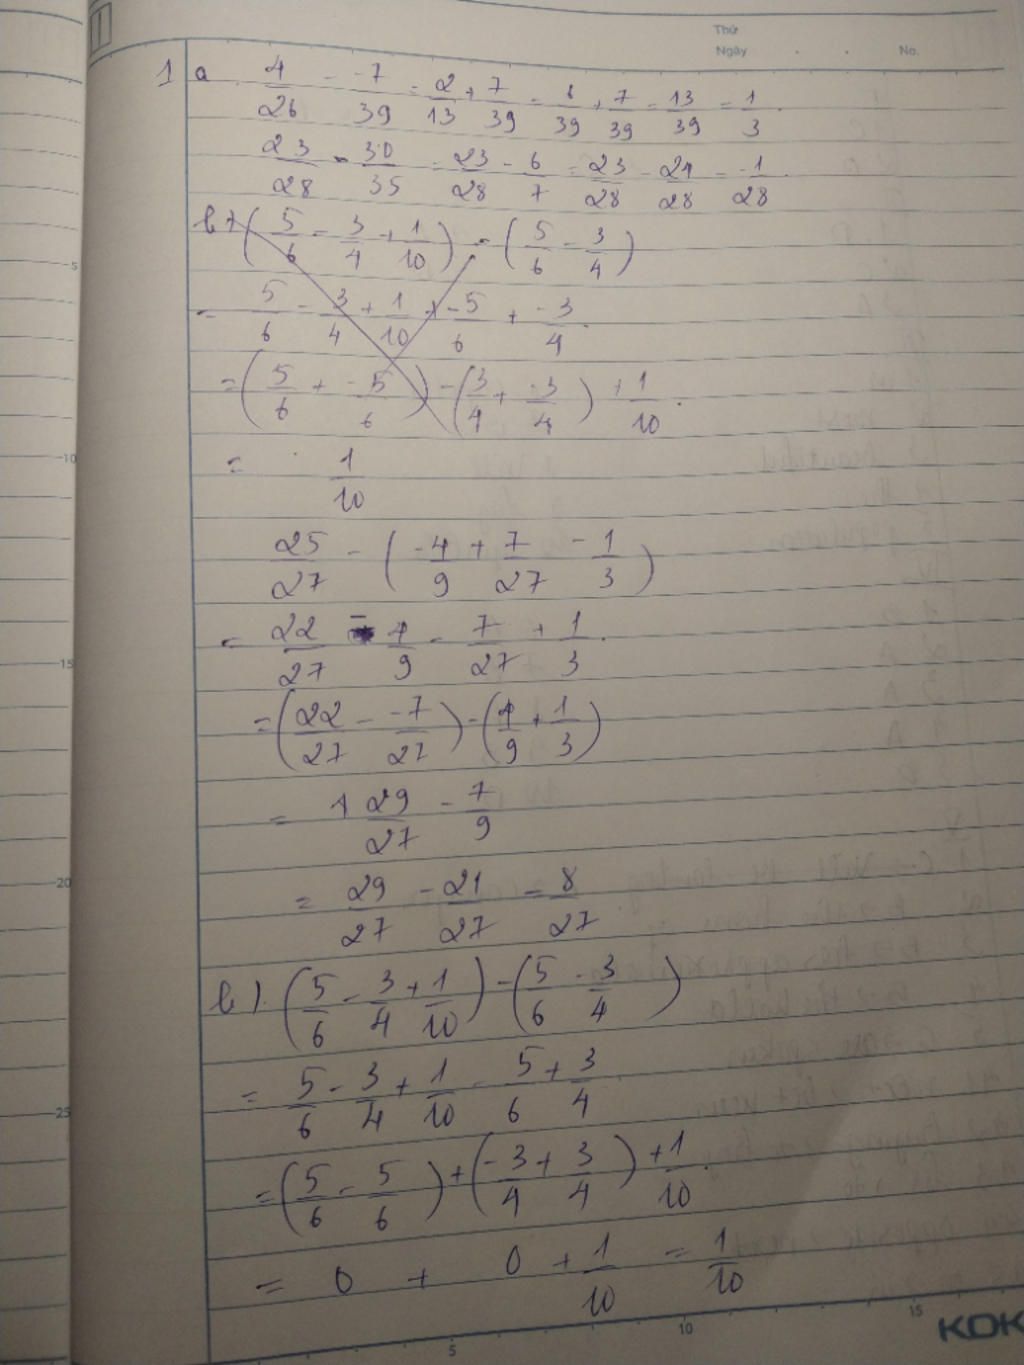 Thứ
Ngày . . No.
1 a 4/26 - -7/39 = 2/13 + 7/39 = 6/39 + 7/39 = 13/39 = 1/3.
23/28 - 30/35 = 23/28 - 6/7 = 23/28 - 24/28 = -1/28.
b) (5/6 - 3/4 + 1/10) - (5/6 - 3/4)
= 5/6 - 3/4 + 1/10 + -5/6 + -3/4.
= (5/6 + -5/6) - (3/4 + -3/4) + 1/10.
= 1/10
25/27 - (-4/9 + 7/27 - 1/3)
= 22/27 - 4/9 - 7/27 + 1/3.
= (22/27 - -7/27) - (4/9 + 1/3)
= 1 29/27 - 7/9
= 29/27 - 21/27 = 8/27
b). (5/6 - 3/4 + 1/10) - (5/6 - 3/4)
= 5/6 - 3/4 + 1/10 - 5/6 + 3/4.
= (5/6 - 5/6) + (-3/4 + 3/4) + 1/10.
= 0 + 0 + 1/10 = 1/10
5
10
15
20
25
5 10 15
KOK